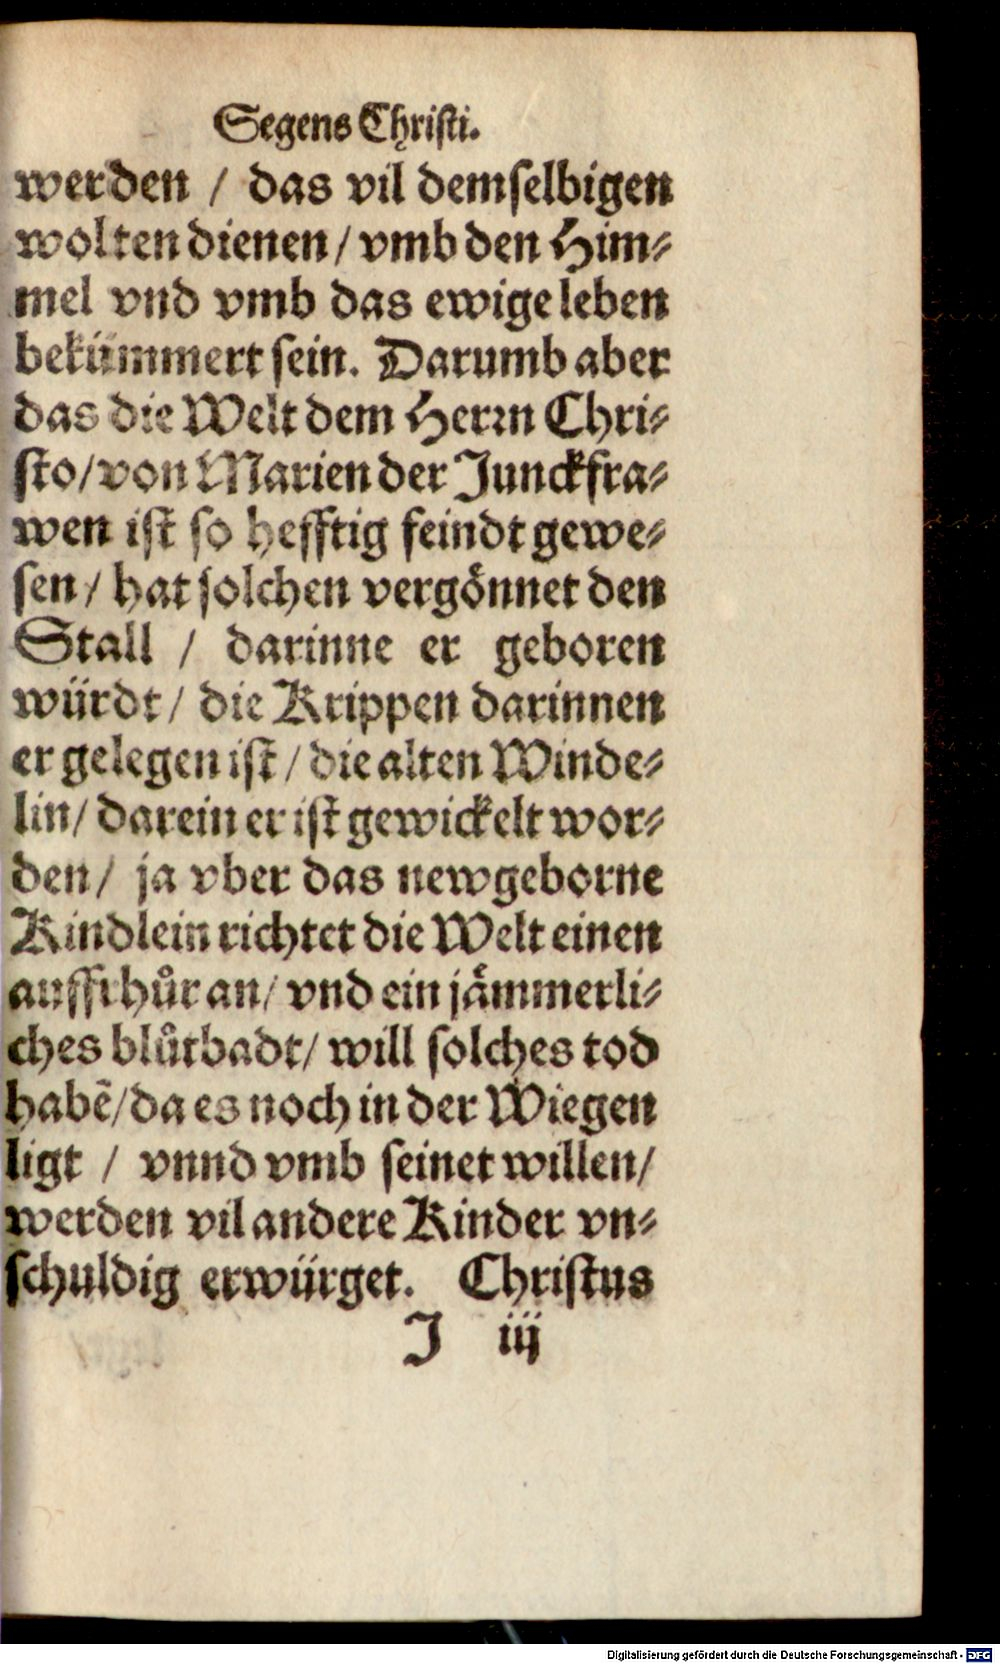 Segens Christi.
werden / das vil demselbigen
wolten dienen / vmb den Him⸗
mel vnd vmb das ewige leben
bekümmert sein. Darumb aber
das die Welt dem Herrn Chri⸗
sto / von Marien der Junckfra⸗
wen ist so hefftig feindt gewe⸗
sen / hat solchen vergönnet den
Stall / darinne er geboren
würdt / die Krippen darinnen
er gelegen ist / die alten Winde⸗
lin / darein er ist gewickelt wor⸗
den / ja vber das newgeborne
Kindlein richtet die Welt einen
auffrhůr an / vnd ein jämmerli⸗
ches blůtbadt / will solches tod
habẽ / da es noch in der Wiegen
ligt / vnnd vmb seinet willen /
werden vil andere Kinder vn⸗
schuldig erwürget. Christus
J iij
Digitalisierung gefördert durch die Deutsche Forschungsgemeinschaft - DFG